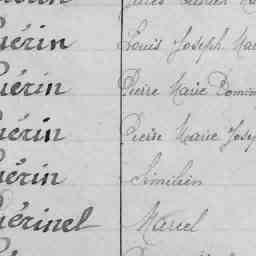 uérin Louis Joseph Mar
uérin Pierre Marie Domin
uérin Pierre Marie Josep
uérin Similien
uérinel Marcel